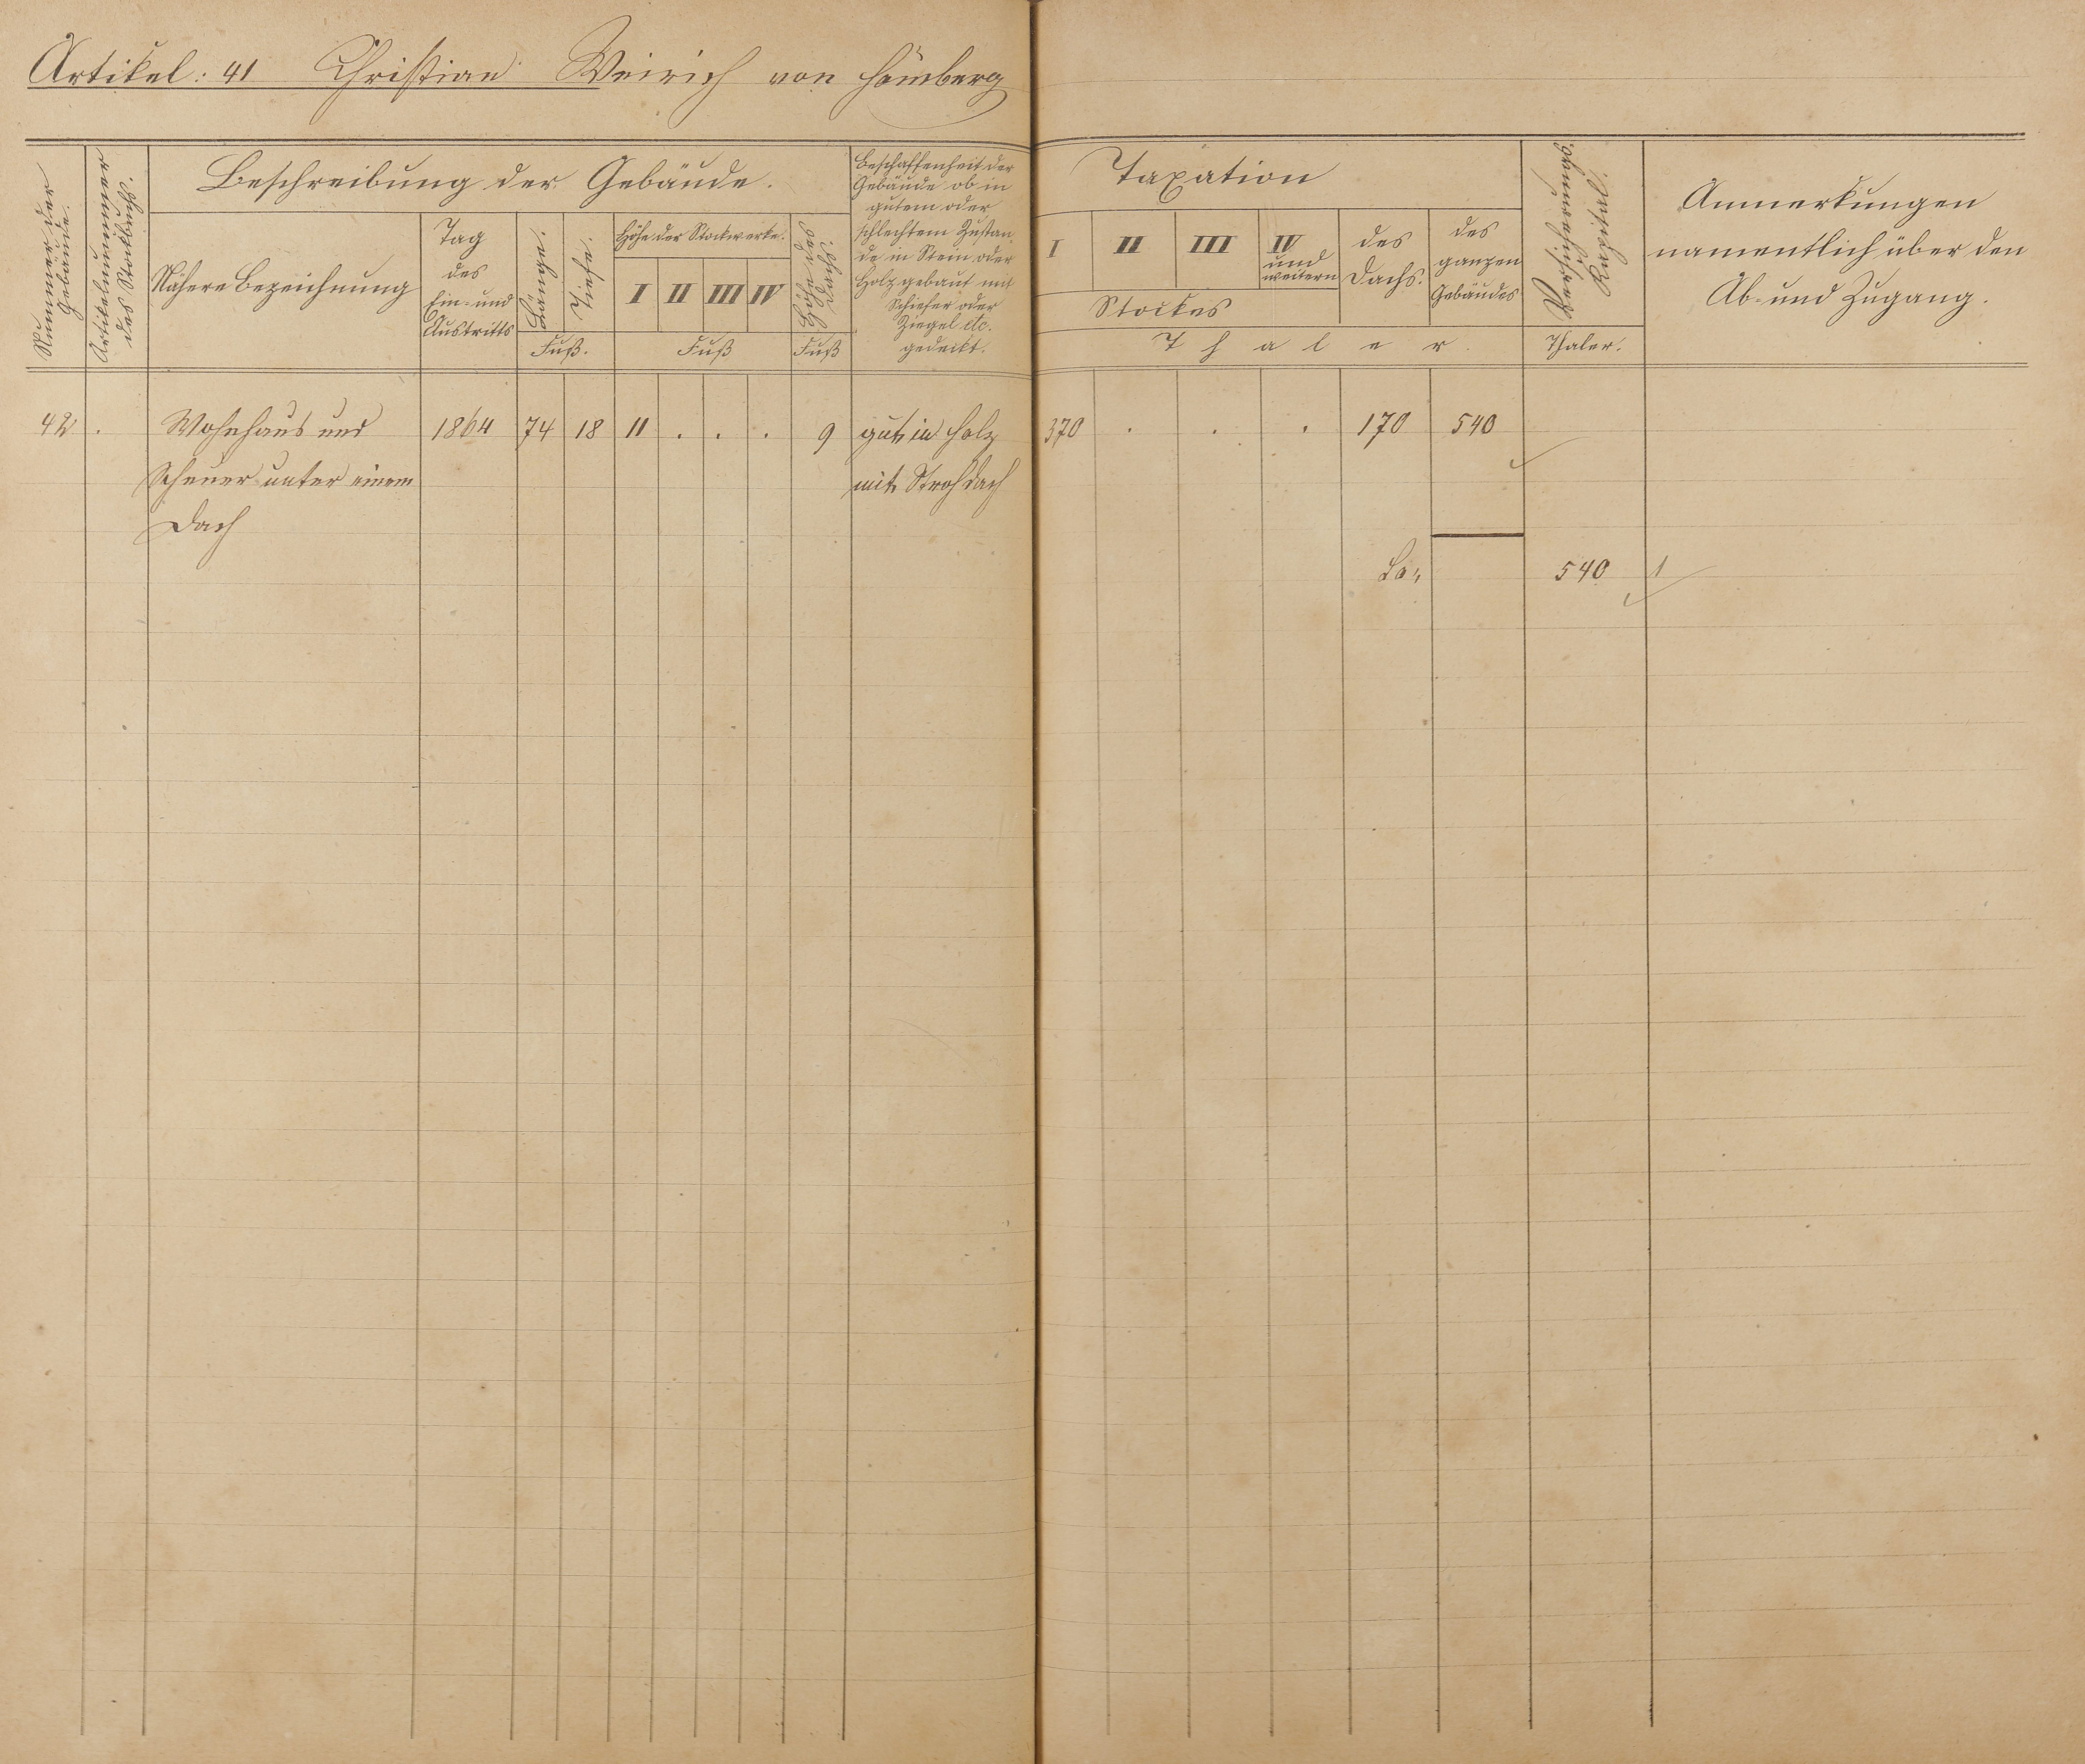 Artikel: 41 Christian Weirich von Hömberg
Nummer der Gebäude.
Artikelnummer des Stockbuchs.
Beschreibung der Gebäude.
Nähere Bezeichnung
Tag
des
Ein- und
Austritts
Länge.
Tiefe.
Fuß.
Höhe der Stockwerke.
I II III IV
Fuß
Höhe des Dachs.
Fuß
Beschaffenheit der
Gebäude ob in
gutem oder
schlechtem Zustan-
de in Stein oder
Holz gebaut mit
Schiefer oder
Ziegel etc.
gedeckt.
Taxation
I II III IV
und
weitern
Stockes
des
Dachs.
des
ganzen
Gebäudes
Thaler.
Versicherungs-
Kapital.
Thaler.
Anmerkungen
namentlich über den
Ab- und Zugang.
42 . Wohnhaus und 1864 74 18 11 . . . 9 gut in Holz 370 . . . 170 540
Scheuer unter einem mit Strohdach
Dach
540 1